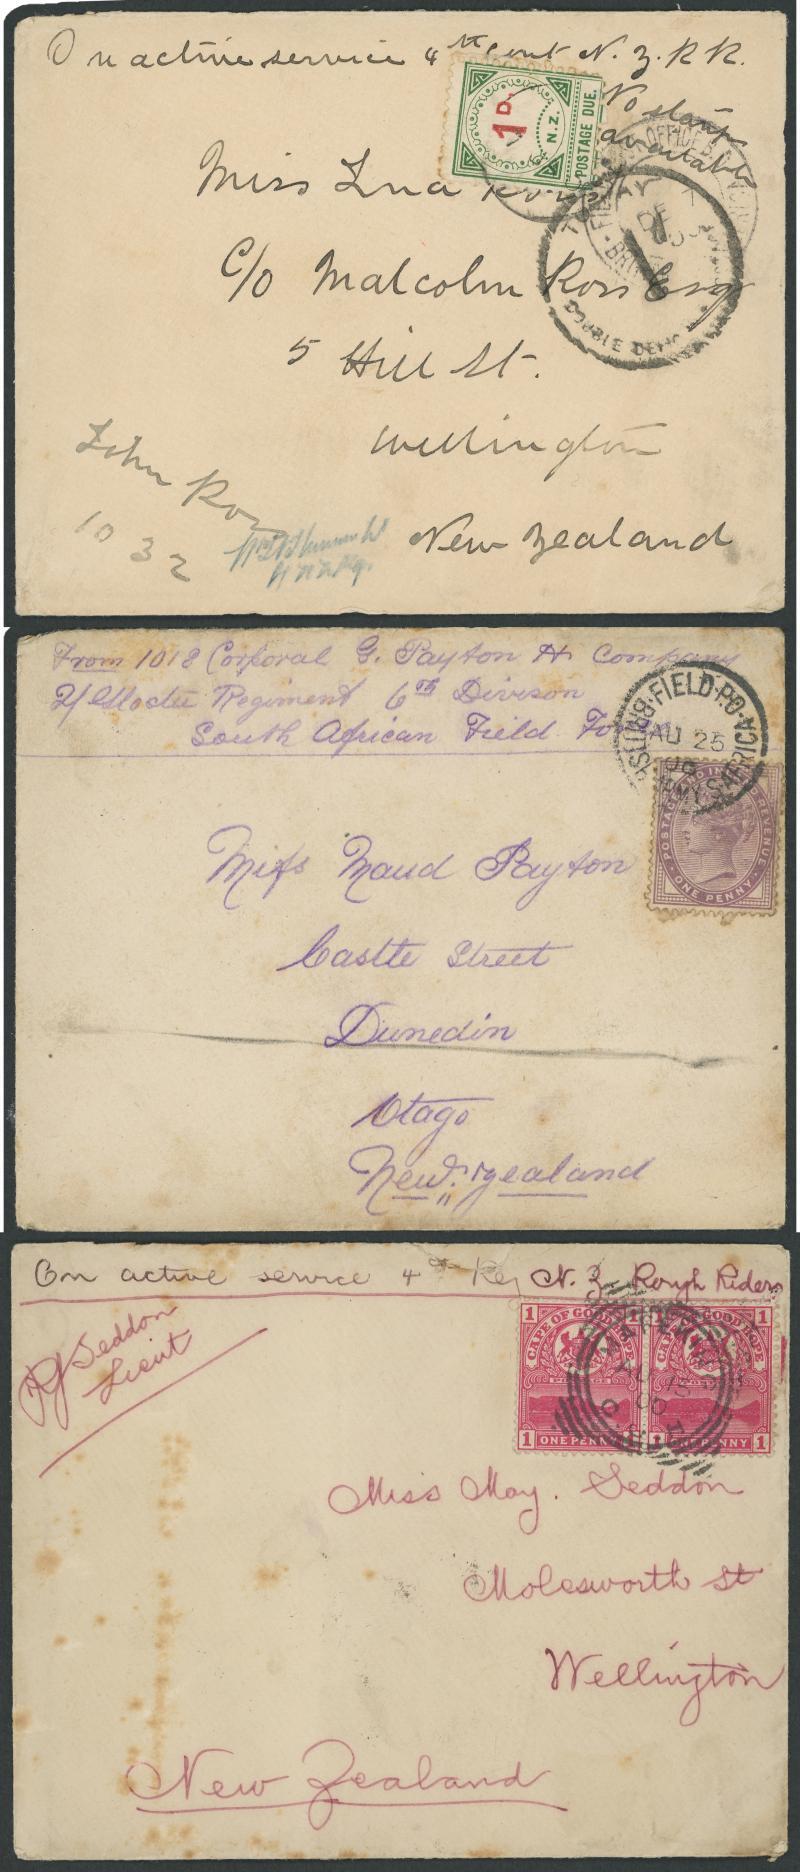 On active service 4th Cont N. Z. R R.
No stamps
available
1D.
N.Z.
POSTAGE DUE.
Miss Ross
C/o Malcolm Ross Esq
5 Hill St.
Wellington
New Zealand
DOUBLE
John Ross
1032
From 1018 Corporal G. Payton H. Company
Regiment 6th Divison
South African Field
BRITISH·FIELD·P.O·
AU 25
00
ARMY S.AFRICA
POSTAGE AND INLAND REVENUE
ONE PENNY
Miss Maud Payton
Castle Street
Dunedin
Otago
New Zealand
On active service 4th Reg N. Z. Rough Riders
RJ Seddon
Lieut
1 CAPE OF GOOD HOPE 1
POSTAGE
1 ONE PENNY
1 CAPE OF GOOD HOPE 1
POSTAGE
1 ONE PENNY 1
AU 15
00
Miss May. Seddon
Molesworth St
Wellington
New Zealand